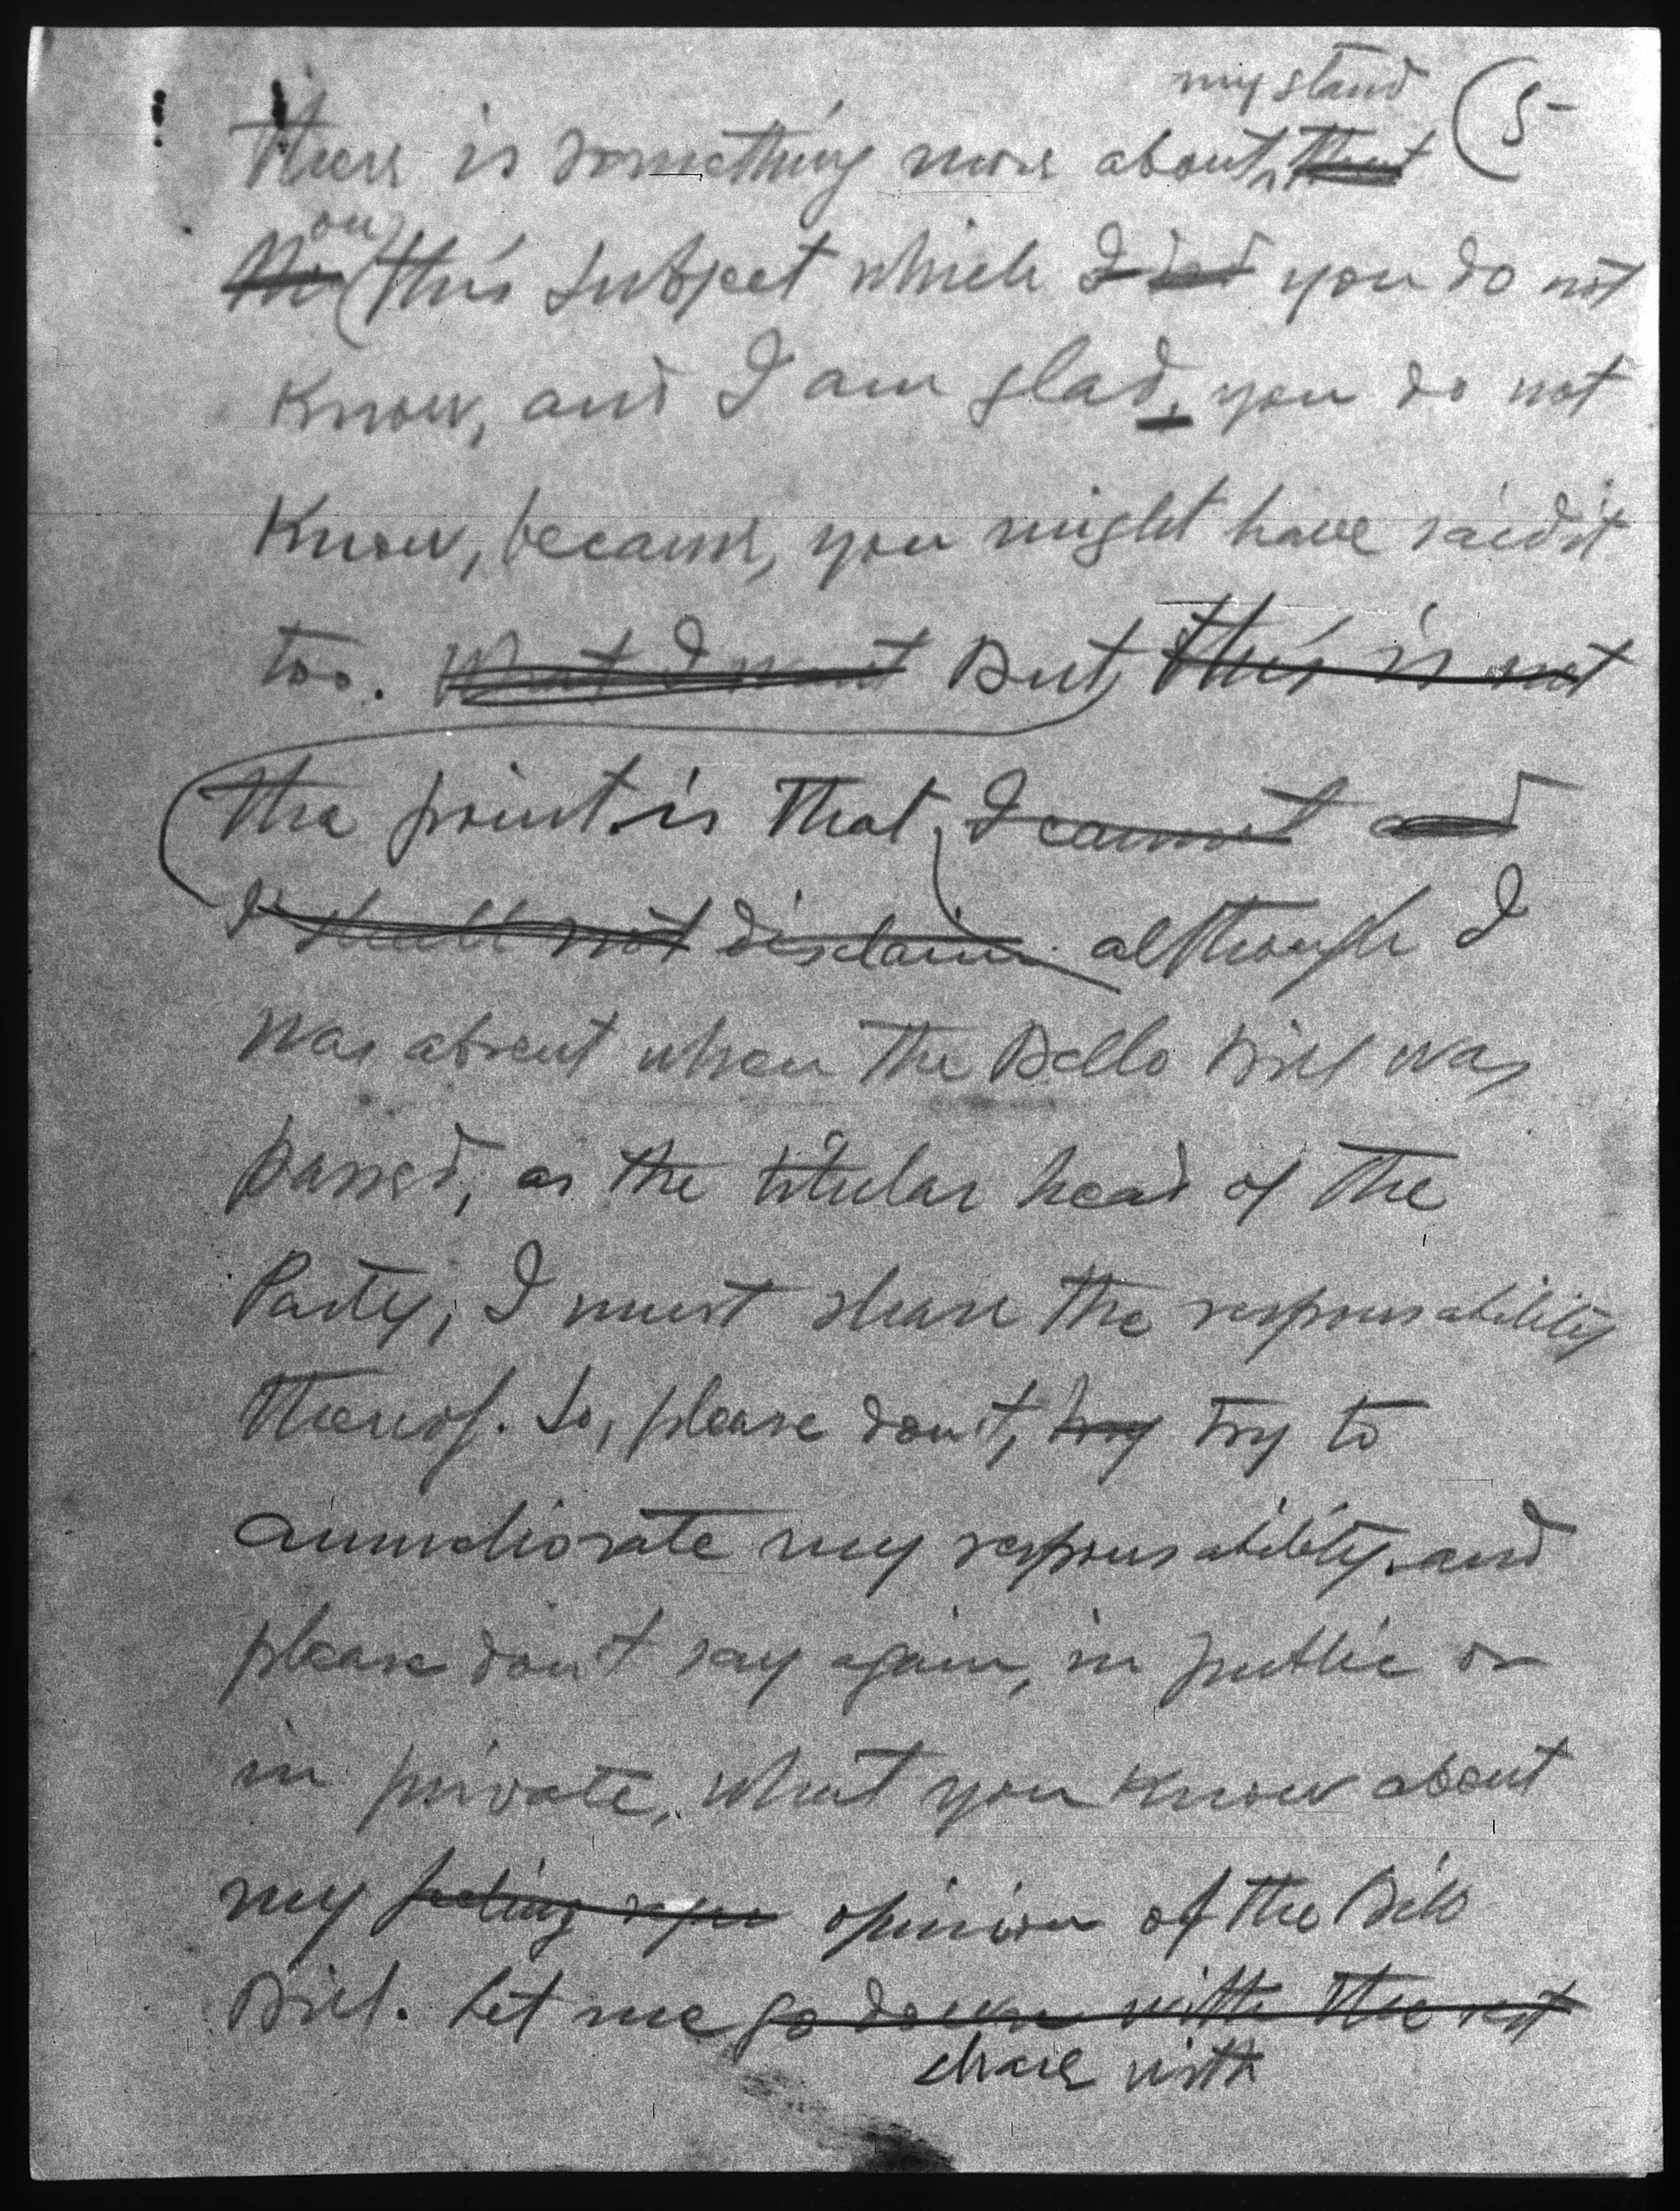 my stand (5
There is something more about, that
on
the this subject which I did you do not
Know, and I am glad, you do not
Know, because, you might have said it
too. What I want But, this is not
the point is that, I cannot and
I shall not disclaim although I
was absent when the Bello Bill was
passed, as the titular head of the
Party, I must share the responsability
thereof. So, please don't, try try to
ammeliorate my responsability and
please don't say again, in public or
in private, what you Know about
my feeling upon opinion of the Bello
Bill. Let me go down with the rest
share with